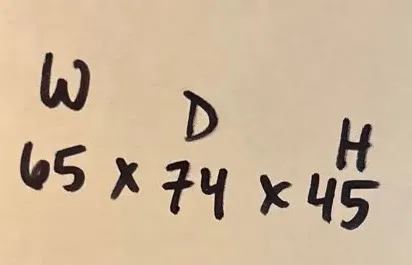 W D H
65 x 74 x 45